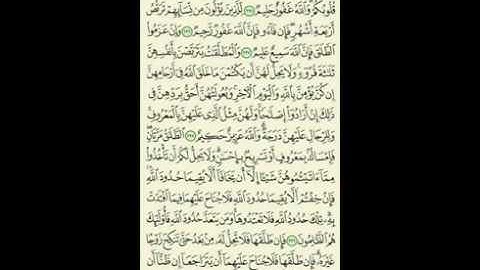 قُلُوبُكُمْ وَٱللَّهُ غَفُورٌ حَلِيمٌ ۝٢٢٥ لِّلَّذِينَ يُؤْلُونَ مِن نِّسَآئِهِمْ تَرَبُّصُ
أَرْبَعَةِ أَشْهُرٍ فَإِن فَآءُو فَإِنَّ ٱللَّهَ غَفُورٌ رَّحِيمٌ ۝٢٢٦ وَإِنْ عَزَمُوا۟
ٱلطَّلَٰقَ فَإِنَّ ٱللَّهَ سَمِيعٌ عَلِيمٌ ۝٢٢٧ وَٱلْمُطَلَّقَٰتُ يَتَرَبَّصْنَ بِأَنفُسِهِنَّ
ثَلَٰثَةَ قُرُوٓءٍ وَلَا يَحِلُّ لَهُنَّ أَن يَكْتُمْنَ مَا خَلَقَ ٱللَّهُ فِىٓ أَرْحَامِهِنَّ
إِن كُنَّ يُؤْمِنَّ بِٱللَّهِ وَٱلْيَوْمِ ٱلْءَاخِرِ وَبُعُولَتُهُنَّ أَحَقُّ بِرَدِّهِنَّ فِى
ذَٰلِكَ إِنْ أَرَادُوٓا۟ إِصْلَٰحًا وَلَهُنَّ مِثْلُ ٱلَّذِى عَلَيْهِنَّ بِٱلْمَعْرُوفِ
وَلِلرِّجَالِ عَلَيْهِنَّ دَرَجَةٌ وَٱللَّهُ عَزِيزٌ حَكِيمٌ ۝٢٢٨ ٱلطَّلَٰقُ مَرَّتَانِ
فَإِمْسَاكٌۢ بِمَعْرُوفٍ أَوْ تَسْرِيحٌۢ بِإِحْسَٰنٍ وَلَا يَحِلُّ لَكُمْ أَن تَأْخُذُوا۟
مِمَّآ ءَاتَيْتُمُوهُنَّ شَيْـًٔا إِلَّآ أَن يَخَافَآ أَلَّا يُقِيمَا حُدُودَ ٱللَّهِ
فَإِنْ خِفْتُمْ أَلَّا يُقِيمَا حُدُودَ ٱللَّهِ فَلَا جُنَاحَ عَلَيْهِمَا فِيمَا ٱفْتَدَتْ
بِهِۦ تِلْكَ حُدُودُ ٱللَّهِ فَلَا تَعْتَدُوهَا وَمَن يَتَعَدَّ حُدُودَ ٱللَّهِ فَأُو۟لَٰٓئِكَ
هُمُ ٱلظَّٰلِمُونَ ۝٢٢٩ فَإِن طَلَّقَهَا فَلَا تَحِلُّ لَهُۥ مِنۢ بَعْدُ حَتَّىٰ تَنكِحَ زَوْجًا
غَيْرَهُۥ فَإِن طَلَّقَهَا فَلَا جُنَاحَ عَلَيْهِمَآ أَن يَتَرَاجَعَآ إِن ظَنَّآ أَن